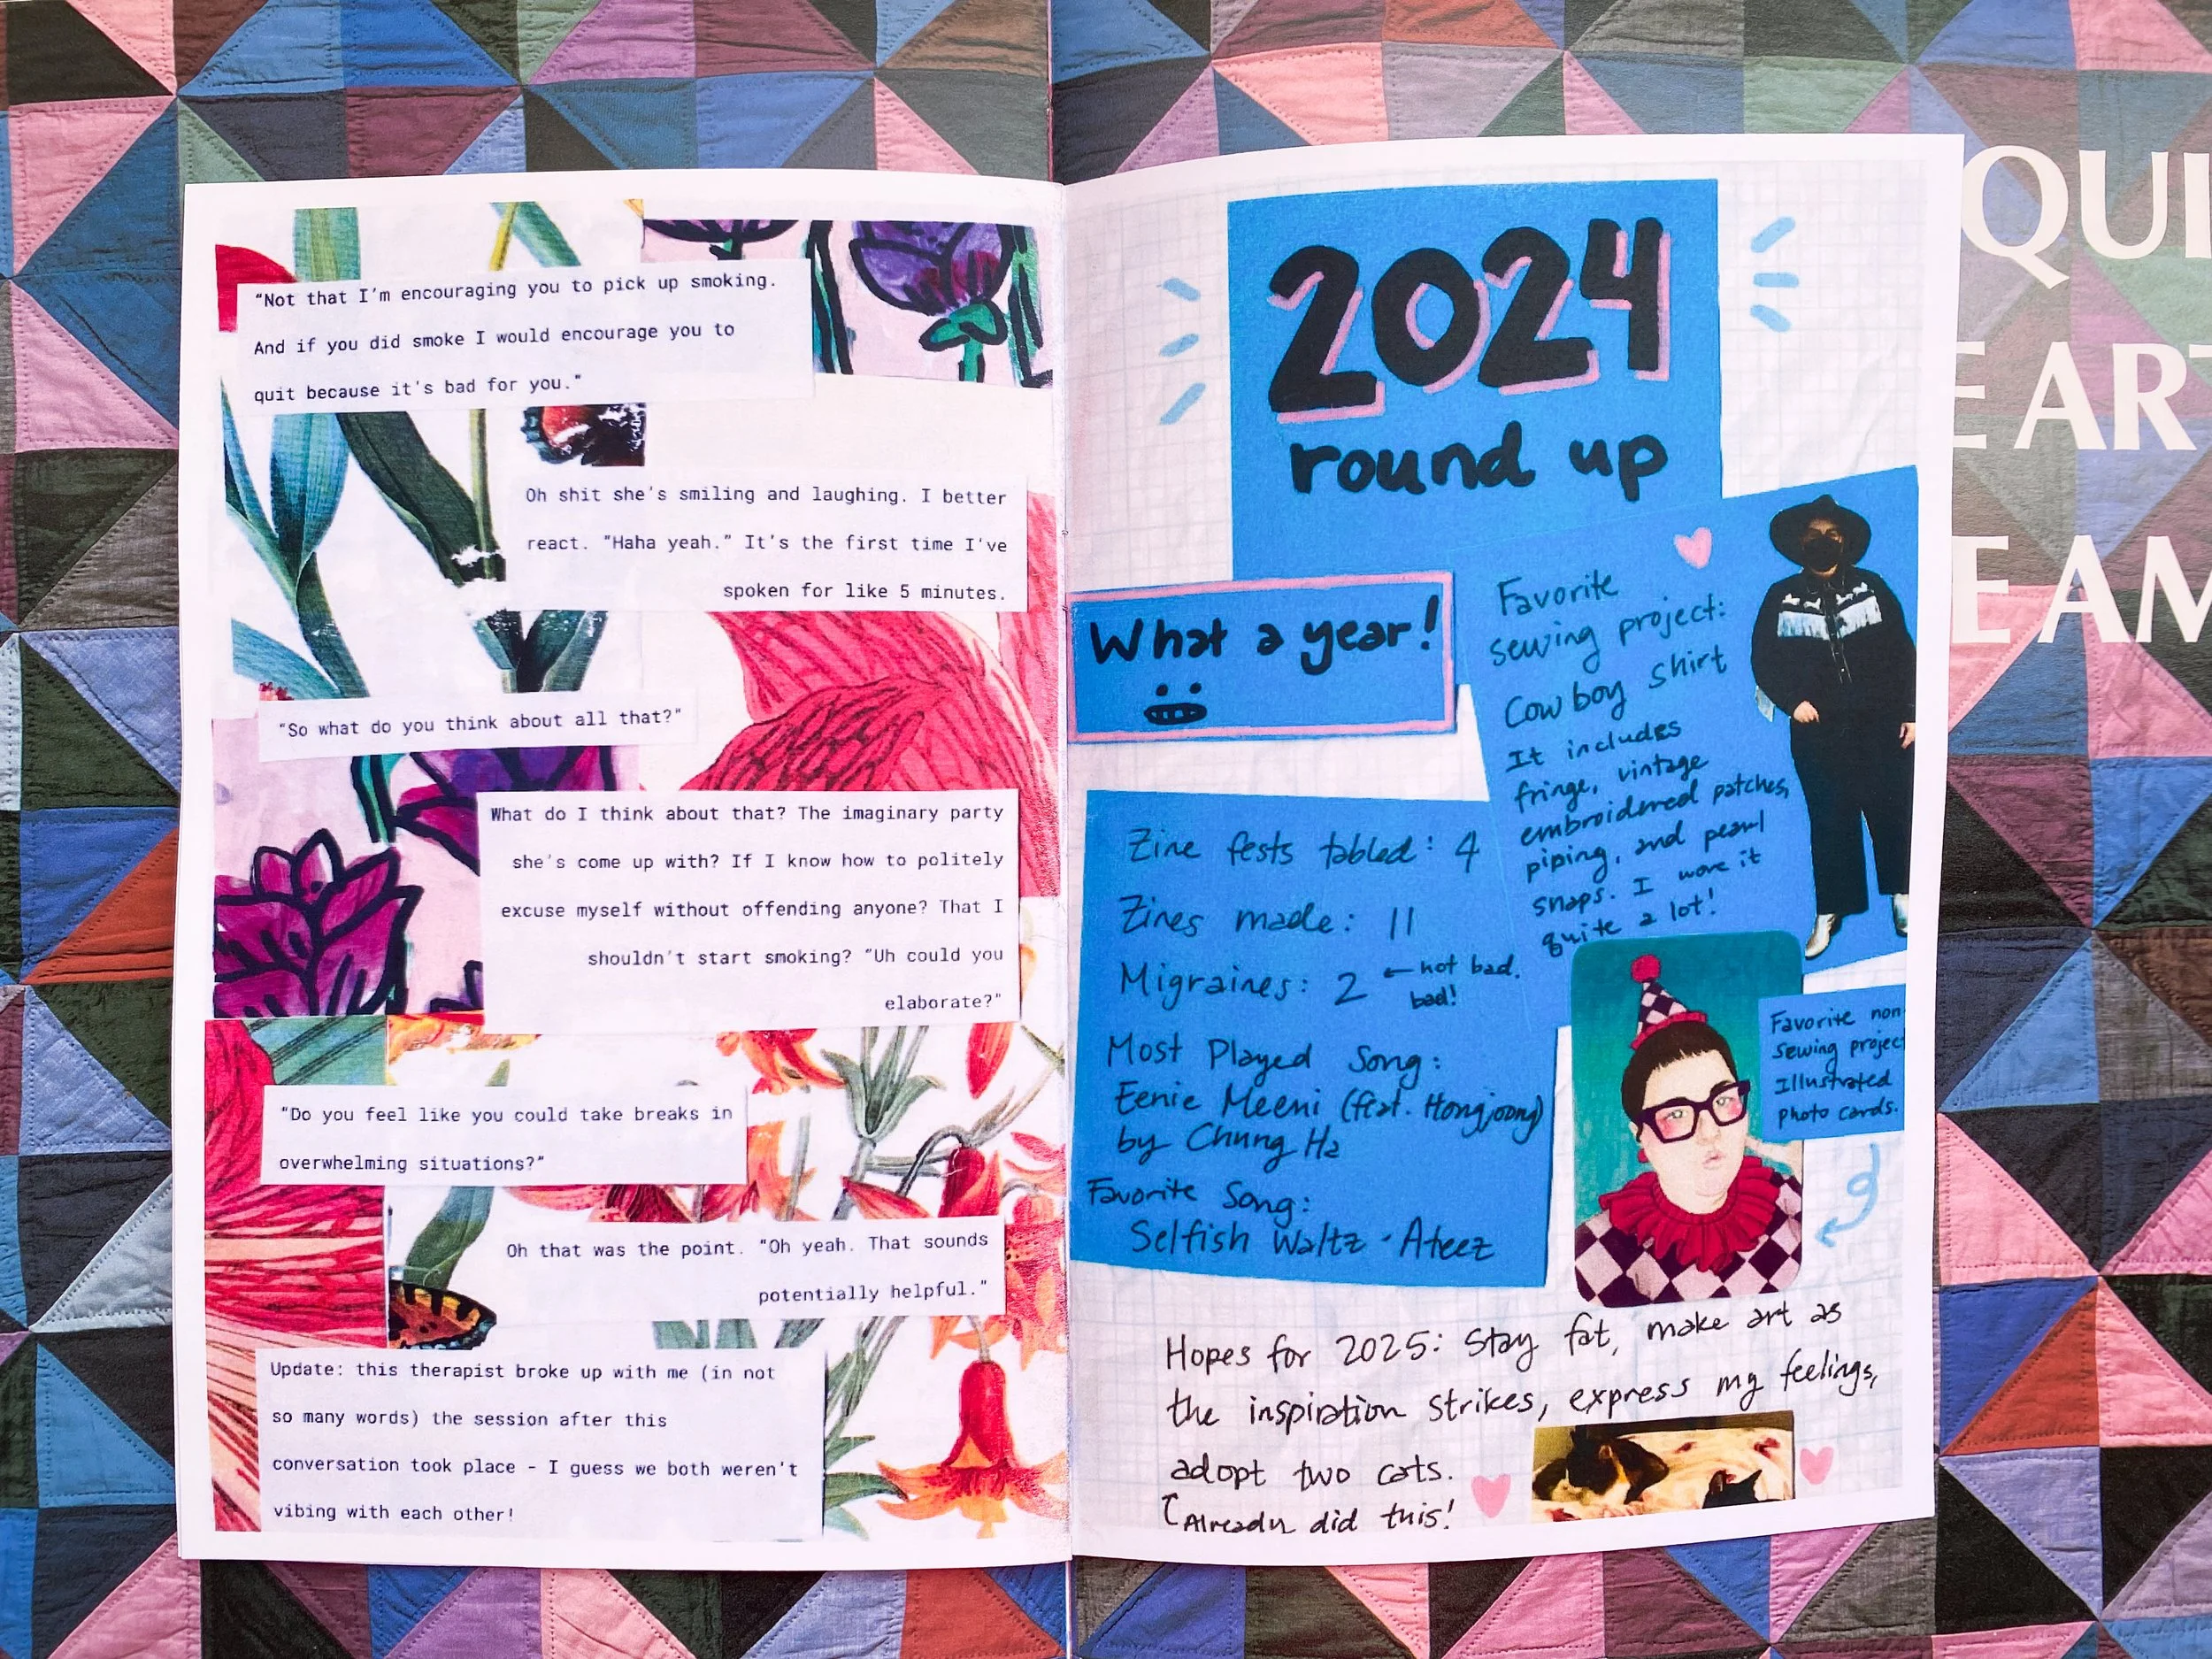 "Not that I'm encouraging you to pick up smoking.
And if you did smoke I would encourage you to
quit because it's bad for you."
Oh shit she's smiling and laughing. I better
react. "Haha yeah." It's the first time I've
spoken for like 5 minutes.
"So what do you think about all that?"
What do I think about that? The imaginary party
she's come up with? If I know how to politely
excuse myself without offending anyone? That I
shouldn't start smoking? "Uh could you
elaborate?"
"Do you feel like you could take breaks in
overwhelming situations?"
Oh that was the point. "Oh yeah. That sounds
potentially helpful."
Update: this therapist broke up with me (in not
so many words) the session after this
conversation took place - I guess we both weren't
vibing with each other!
2024
round up
What a year!
Favorite
sewing project:
Cowboy shirt
It includes
fringe, vintage
embroidered patches,
piping, and pearl
snaps. I wore it
quite a lot!
Zine fests tabled: 4
Zines made: 11
Migraines: 2 ← not bad.
bad!
Most Played Song:
Eenie Meeni (feat. Hongjoong)
by Chung Ha
Favorite Song:
Selfish Waltz - Ateez
Favorite non
sewing projec
Illustrated
photo cards.
Hopes for 2025: Stay fat, make art as
the inspiration strikes, express my feelings,
adopt two cats.
Already did this!
QUI
E ART
E AM